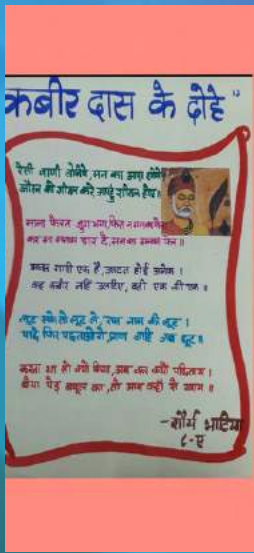 कबीर दास के दोहे"
ऐसी वाणी बोलिये, मन का आपा खोये
औरन को शीतल करे आपहुं शीतल होय॥
माला फेरत जुग भया, फिरा न मनका फेर
कर का मनका डार दे, मनका मनका फेर॥
आवत गारी एक है, उलटत होई अनेक।
कह कबीर नहिं उलटिए, वही एक की एक॥
लूट सके तो लूट ले, राम नाम की लूट।
पाछे फिर पछताओगे, प्राण जाहि जब छूट॥
करता था तो क्यों किया, अब कर क्यों पछिताय।
बोया पेड़ बबूल का, तो आम कहाँ से खाय॥
-शौर्य भाटिया
८-ए